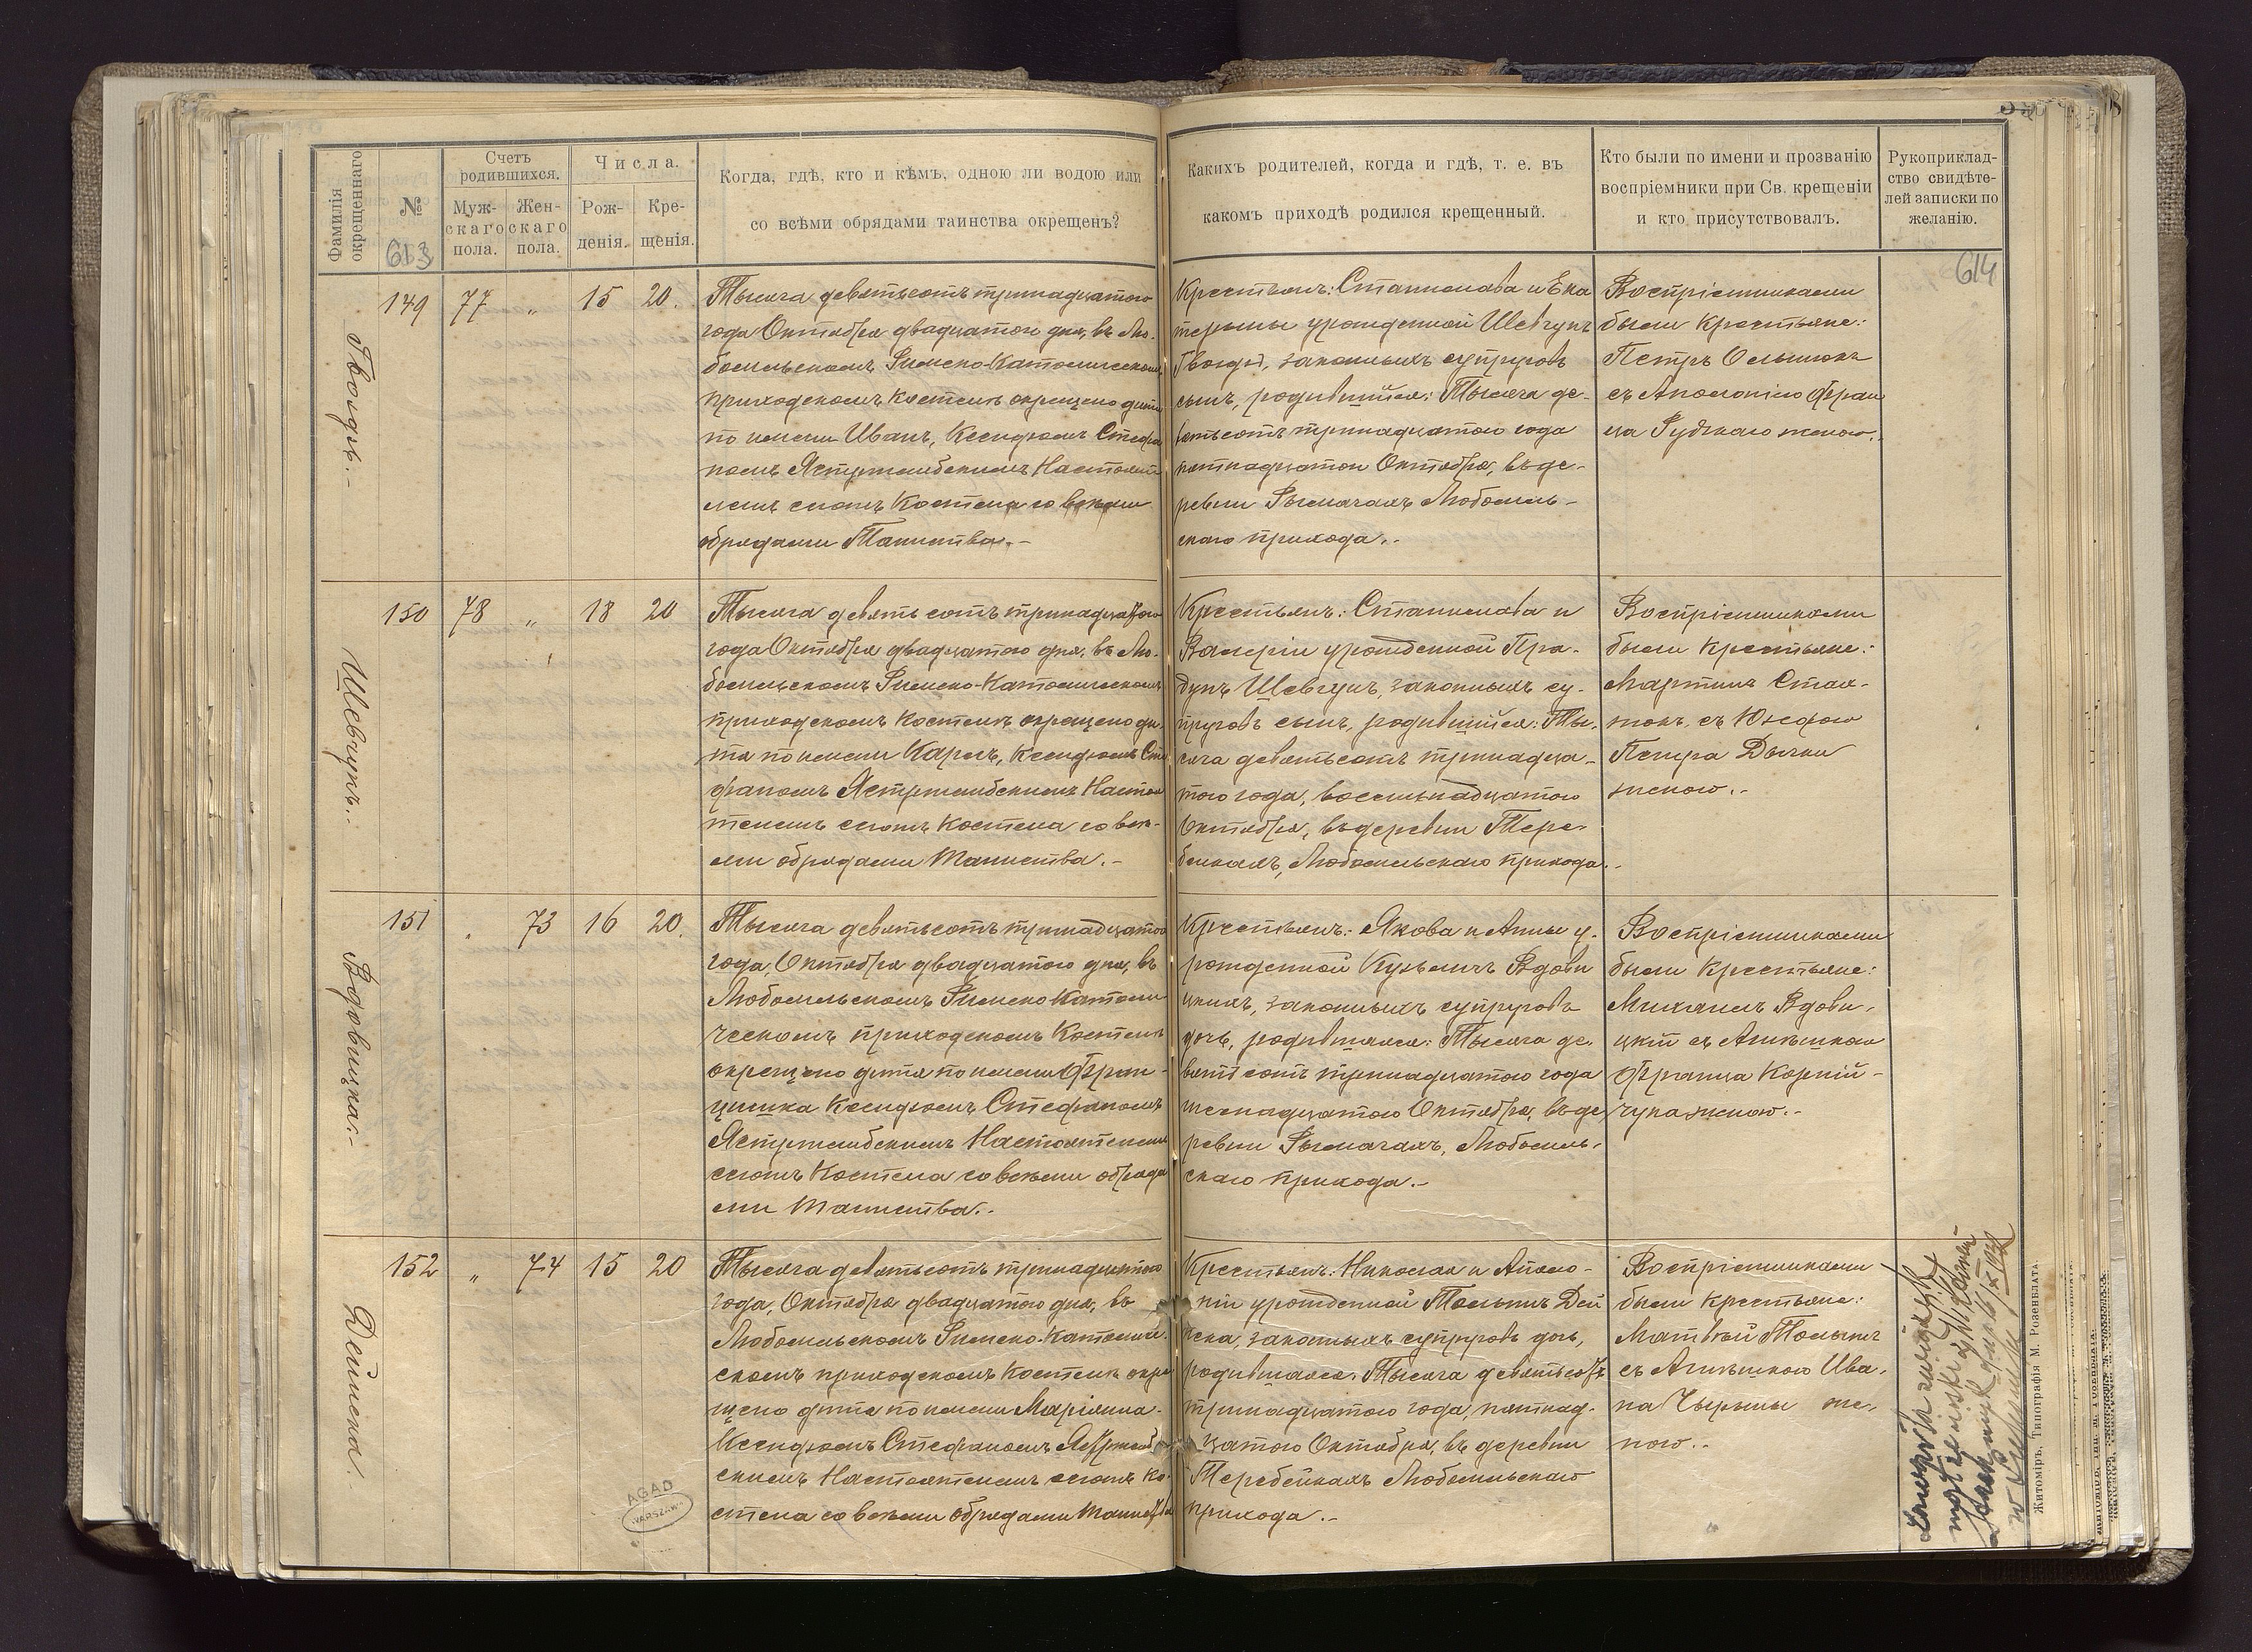 Фамилія
окрещеннаго
№
613
Счетъ
родившихся.
Муж-
скаго
пола.
Жен-
скаго
пола.
Числа.
Рож-
денія.
Кре-
щенія.
Когда, гдѣ, кто и кѣмъ, одною ли водою или
со всѣми обрядами таинства окрещенъ?
Каких​ъ родителей, когда и гдѣ, т. е. въ
какомъ приходѣ родился крещенный.
Кто были по имени и прозванію
воспріемники при Св. крещеніи
и кто присутствовалъ.
Рукоприклад-
ство свидѣте-
лей записки по
желанію.
614
149 77 „ 15 20.
Тысяча девятьсотъ тринадцатого
года Октября двадцатого дня, въ Лю-
бомльскомъ Римско-Католическомъ
приходскомъ Костелѣ окрещено дитя
по имени Иванъ, Ксендзомъ Стефа
номъ Ястржембскимъ Настояте
лемъ сютъ Костела со всѣми
обрядами Таинства.-
Крестьянъ: Станислава и Ека
терины урожденной Шевчукъ
законныхъ супруговъ
сынъ, родившійся: Тысяча де-
вятьсотъ тринадцатого года
пятнадцатого Октября, въ де-
ревни Рымачахъ Любомль-
скаго прихода.-
Воспріемниками
были крестьяне:
Петръ
съ Аполоніею Фран
ца женою.
150 78 „ 18 20
Шевчукъ.-
Тысяча девятьсотъ тринадцатого
года Октября двадцатого дня, въ Лю-
бомльскомъ Римско-Католическомъ
приходскомъ Костелѣ окрещено ди-
тя по имени Карлъ, Ксендзомъ Сте
фаномъ Ястржембскимъ Настоя
телемъ сютъ Костела со всѣ-
ми обрядами Таинства.-
Крестьянъ: Станислава и
Валеріи урожденной
Шевчукъ, законныхъ су-
пруговъ сынъ, родившійся: Ты-
сяча девятьсотъ тринадца-
того года, восемьнадцатого
Октября, въ деревни Тере-
бейкахъ, Любомльскаго прихода.-
Воспріемниками
были крестьяне:
Мартинъ
съ Юзефою
Петра
женою.-
151 „ 73 16 20.
Вдовицка.-
Тысяча девятьсотъ тринадцатого
года, Октября двадцатого дня, въ
Любомльскомъ Римско Католи
ческомъ приходскомъ Костелѣ
окрещено дитя по имени Фран-
цишка Ксендзомъ Стефаномъ
Ястржембскимъ Настоятелемъ
сютъ Костела со всѣми обряда
ми Таинства.-
Крестьянъ: Якова и Анны у-
рожденной Кузьмичъ Вдови
цкихъ, законныхъ супруговъ
дочь, родившаяся: Тысяча де-
вятьсотъ тринадцатого года
шестнадцатого Октября, въ де
ревни Рымачахъ, Любомль-
скаго прихода.-
Воспріемниками
были крестьяне:
Михаилъ Вдови-
цкій съ Агнѣшкою
Франца Корній-
чука женою.-
152 „ 74 15 20
Дейнека.
Тысяча девятьсотъ тринадцатого
года, Октября двадцатого дня, въ
Любомльскомъ Римско-Католиче
скомъ приходскомъ Костелѣ окре
щено дитя по имени Маріянна-
Ксендзомъ Стефаномъ Ястржемб
скимъ Настоятелемъ сютъ Ко-
стела со всѣми обрядами Таинства
Крестьянъ: Николая и Аполо-
ніи урожденной Дей
нека, законныхъ супруговъ дочь,
родившаяся: Тысяча девятьсотъ
тринадцатого года, пятнад-
цатого Октября, въ деревни
Теребейкахъ Любомльскаго
прихода.-
Воспріемниками
были крестьяне:
Матвѣй
съ Агнѣшкою Ива-
на же-
ною.-
AGAD
WARSZAWA
Житоміръ, Типографія М. Розенблата.